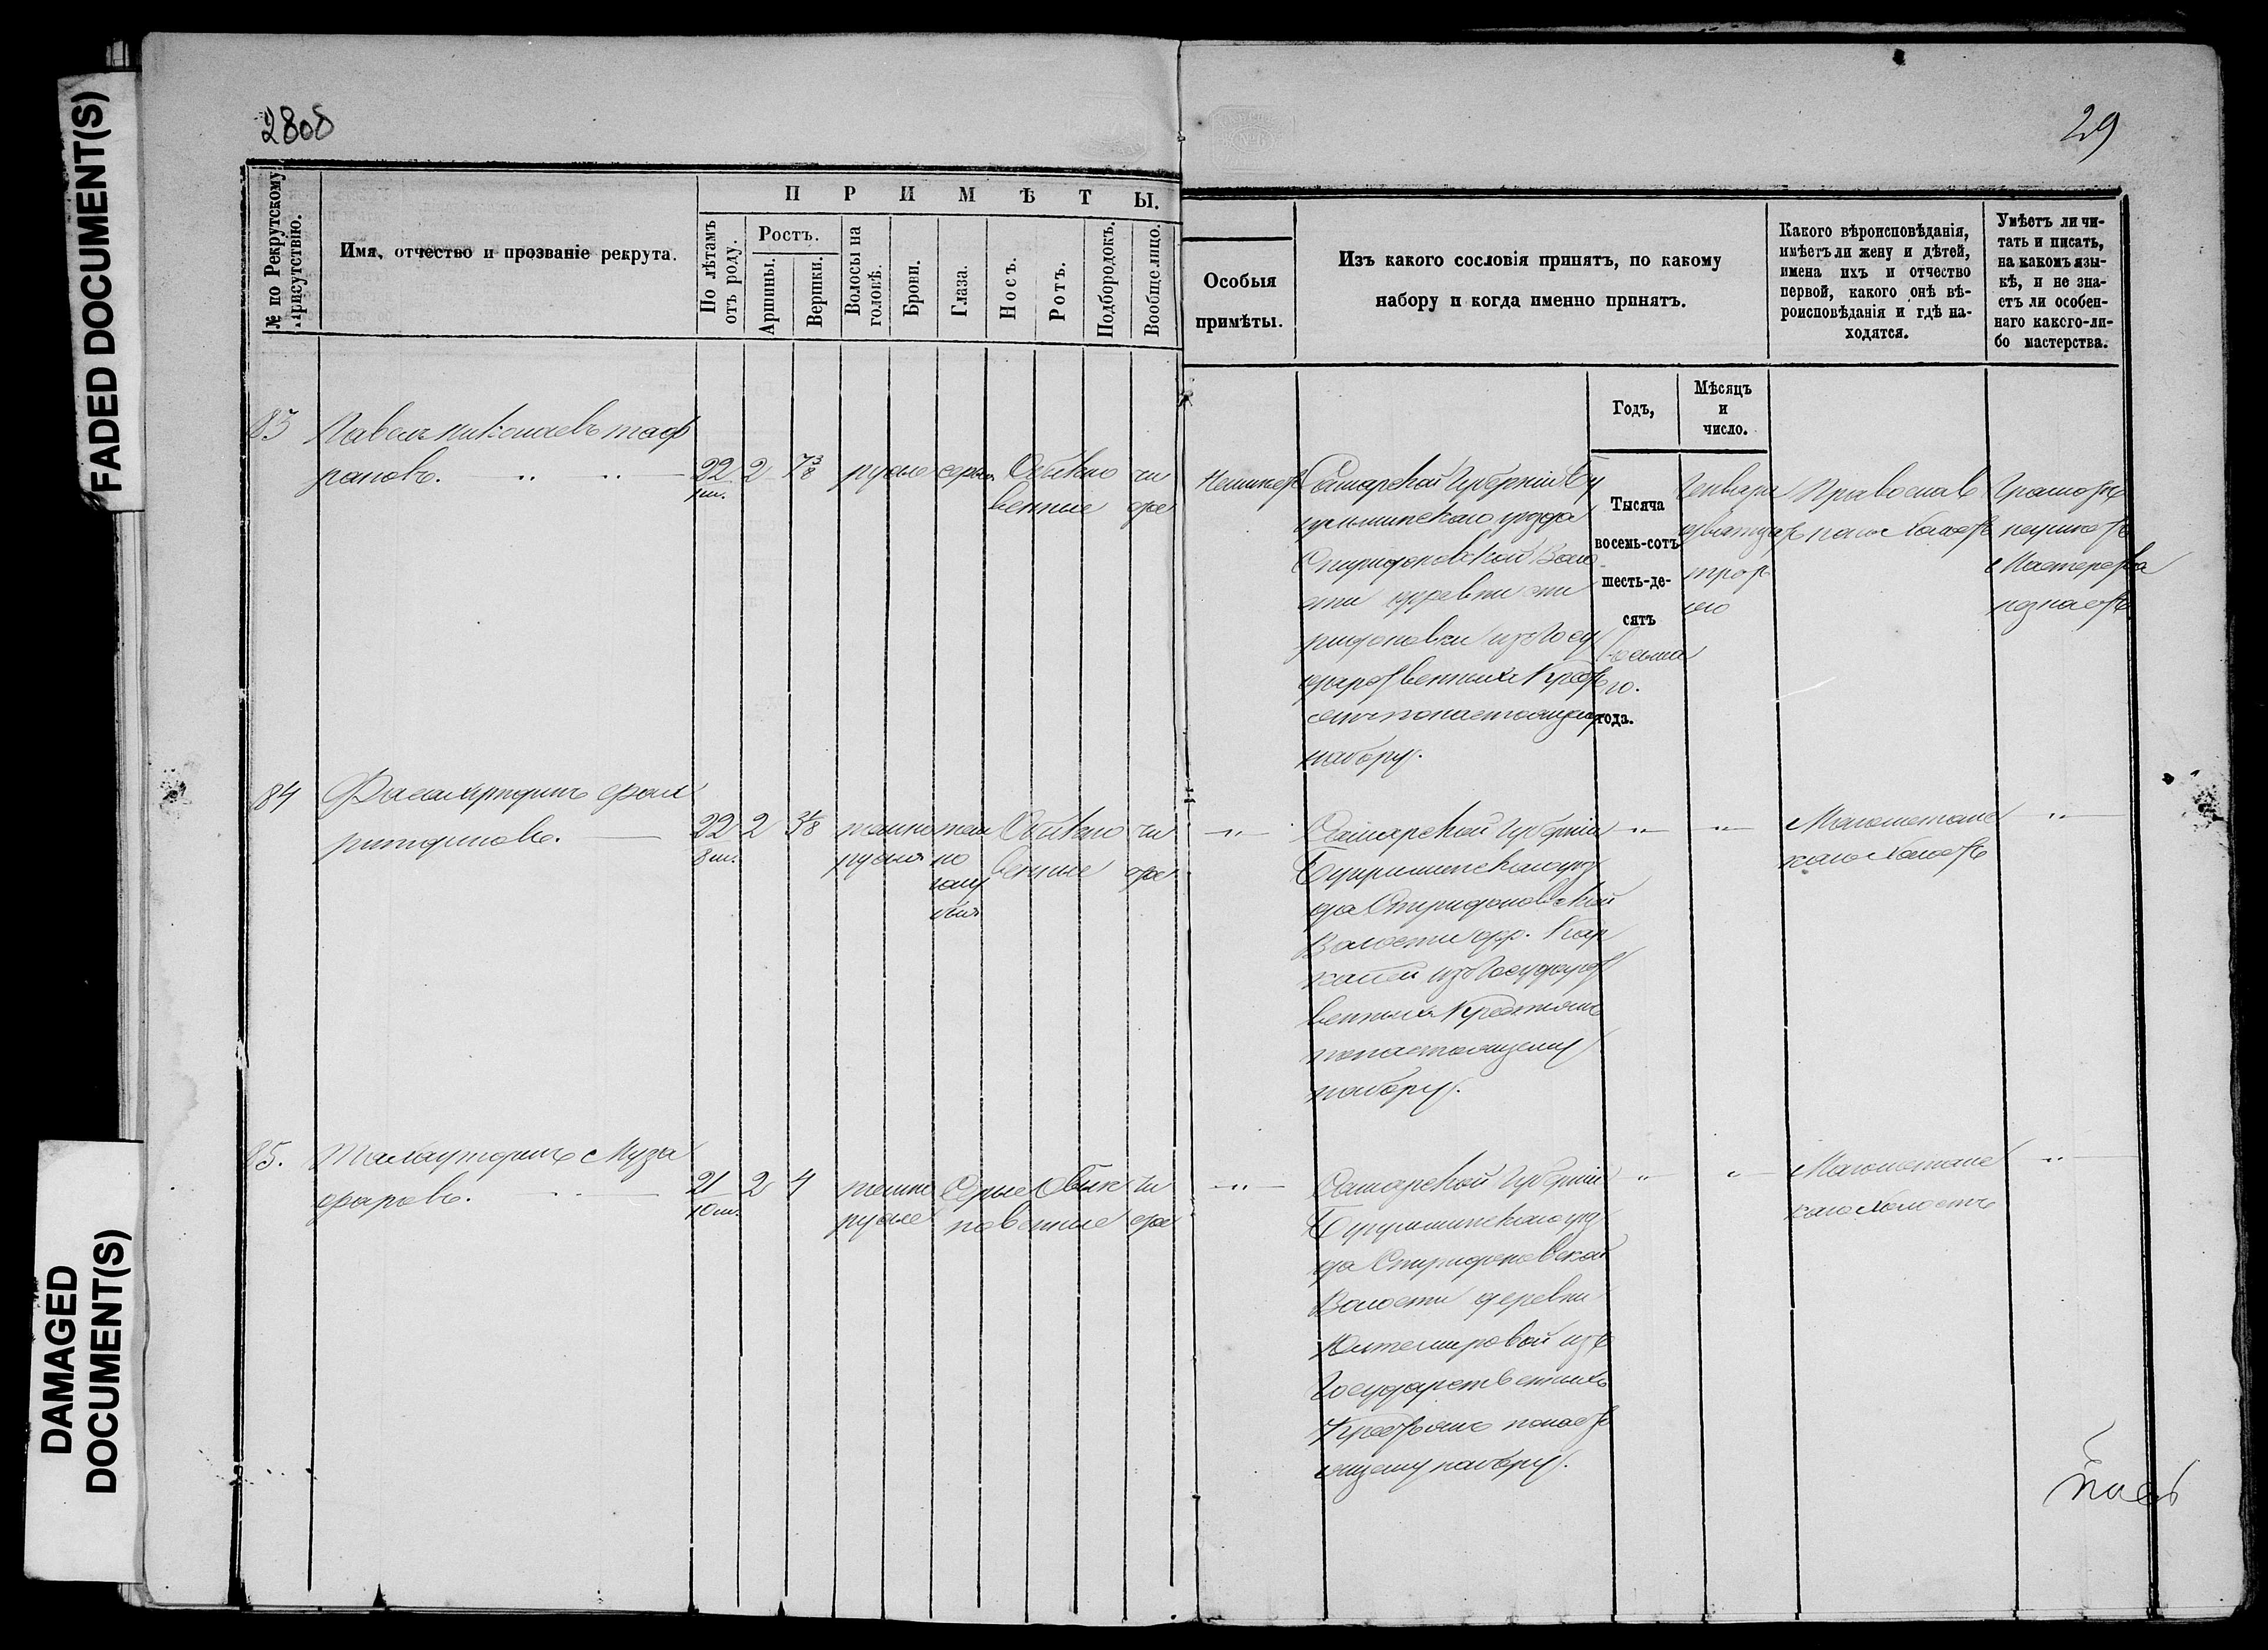 FADED DOCUMENT(S)
DAMAGED
DOCUMENT(S)
2808
29
№ по Рекрутскому
Присутствію.
Имя, отчество и прозваніе рекрута.
ПРИМѢТЫ.
По лѣтамъ
отъ роду.
Ростъ.
Аршины.
Вершки.
Волосы на
головѣ.
Брови.
Глаза.
Носъ.
Ротъ.
Подбородокъ.
Вообще лицо.
Особыя
примѣты.
Изъ какого сословія принятъ, по какому
набору и когда именно принятъ.
Какого вѣроисповѣданія,
имѣетъ ли жену и дѣтей,
имена ихъ и отчество
первой, какого онѣ вѣ-
роисповѣданія и гдѣ на-
ходятся.
Умѣетъ ли чи-
тать и писать,
на какомъ язы-
кѣ, и не зна-
етъ ли особен-
наго какого-ли-
бо мастерства.
Годъ,
Мѣсяцъ
и
число.
83
Павелъ Николаевъ
рановъ.
22
2
7 3/8
русые
серые
Обыкно
венные
чи
стое
Самарской Губерніи Бу
гульминскаго уѣзда
Спиридоновской Воло
сти деревни Спи
ридоновки изъ Госу
дарственныхъ Кресть
янъ по настоящему
набору.
Тысяча
восемь-сотъ
шесть-де-
сятъ
восьма
го.
года.
Генваря
двадцать
Православ
наго холостъ
Грамотѣ
неумѣетъ
Мастерства
незнаетъ
84
ритдиновъ.
22
8 м.
2
темно
русые
тем
но
голу
бые
Обыкно
венные
чи
стое
Самарской Губерніи
Бугульминскаго уѣз
да Спиридоновской
Волости дер.
изъ Государст
венныхъ Крестьянъ
по настоящему
набору.
Магометанс
каго холостъ
85.
Муза
фаровъ.
21
10 м.
2
4
темно
русые
Серые
Обык
новенные
чи
стое
Самарской Губерніи
Бугульминскаго уѣз
да Спиридоновской
Волости деревни
Юлтемировой изъ
Государственныхъ
Крестьянъ по наст
оящему набору.
Магометанс
каго холостъ